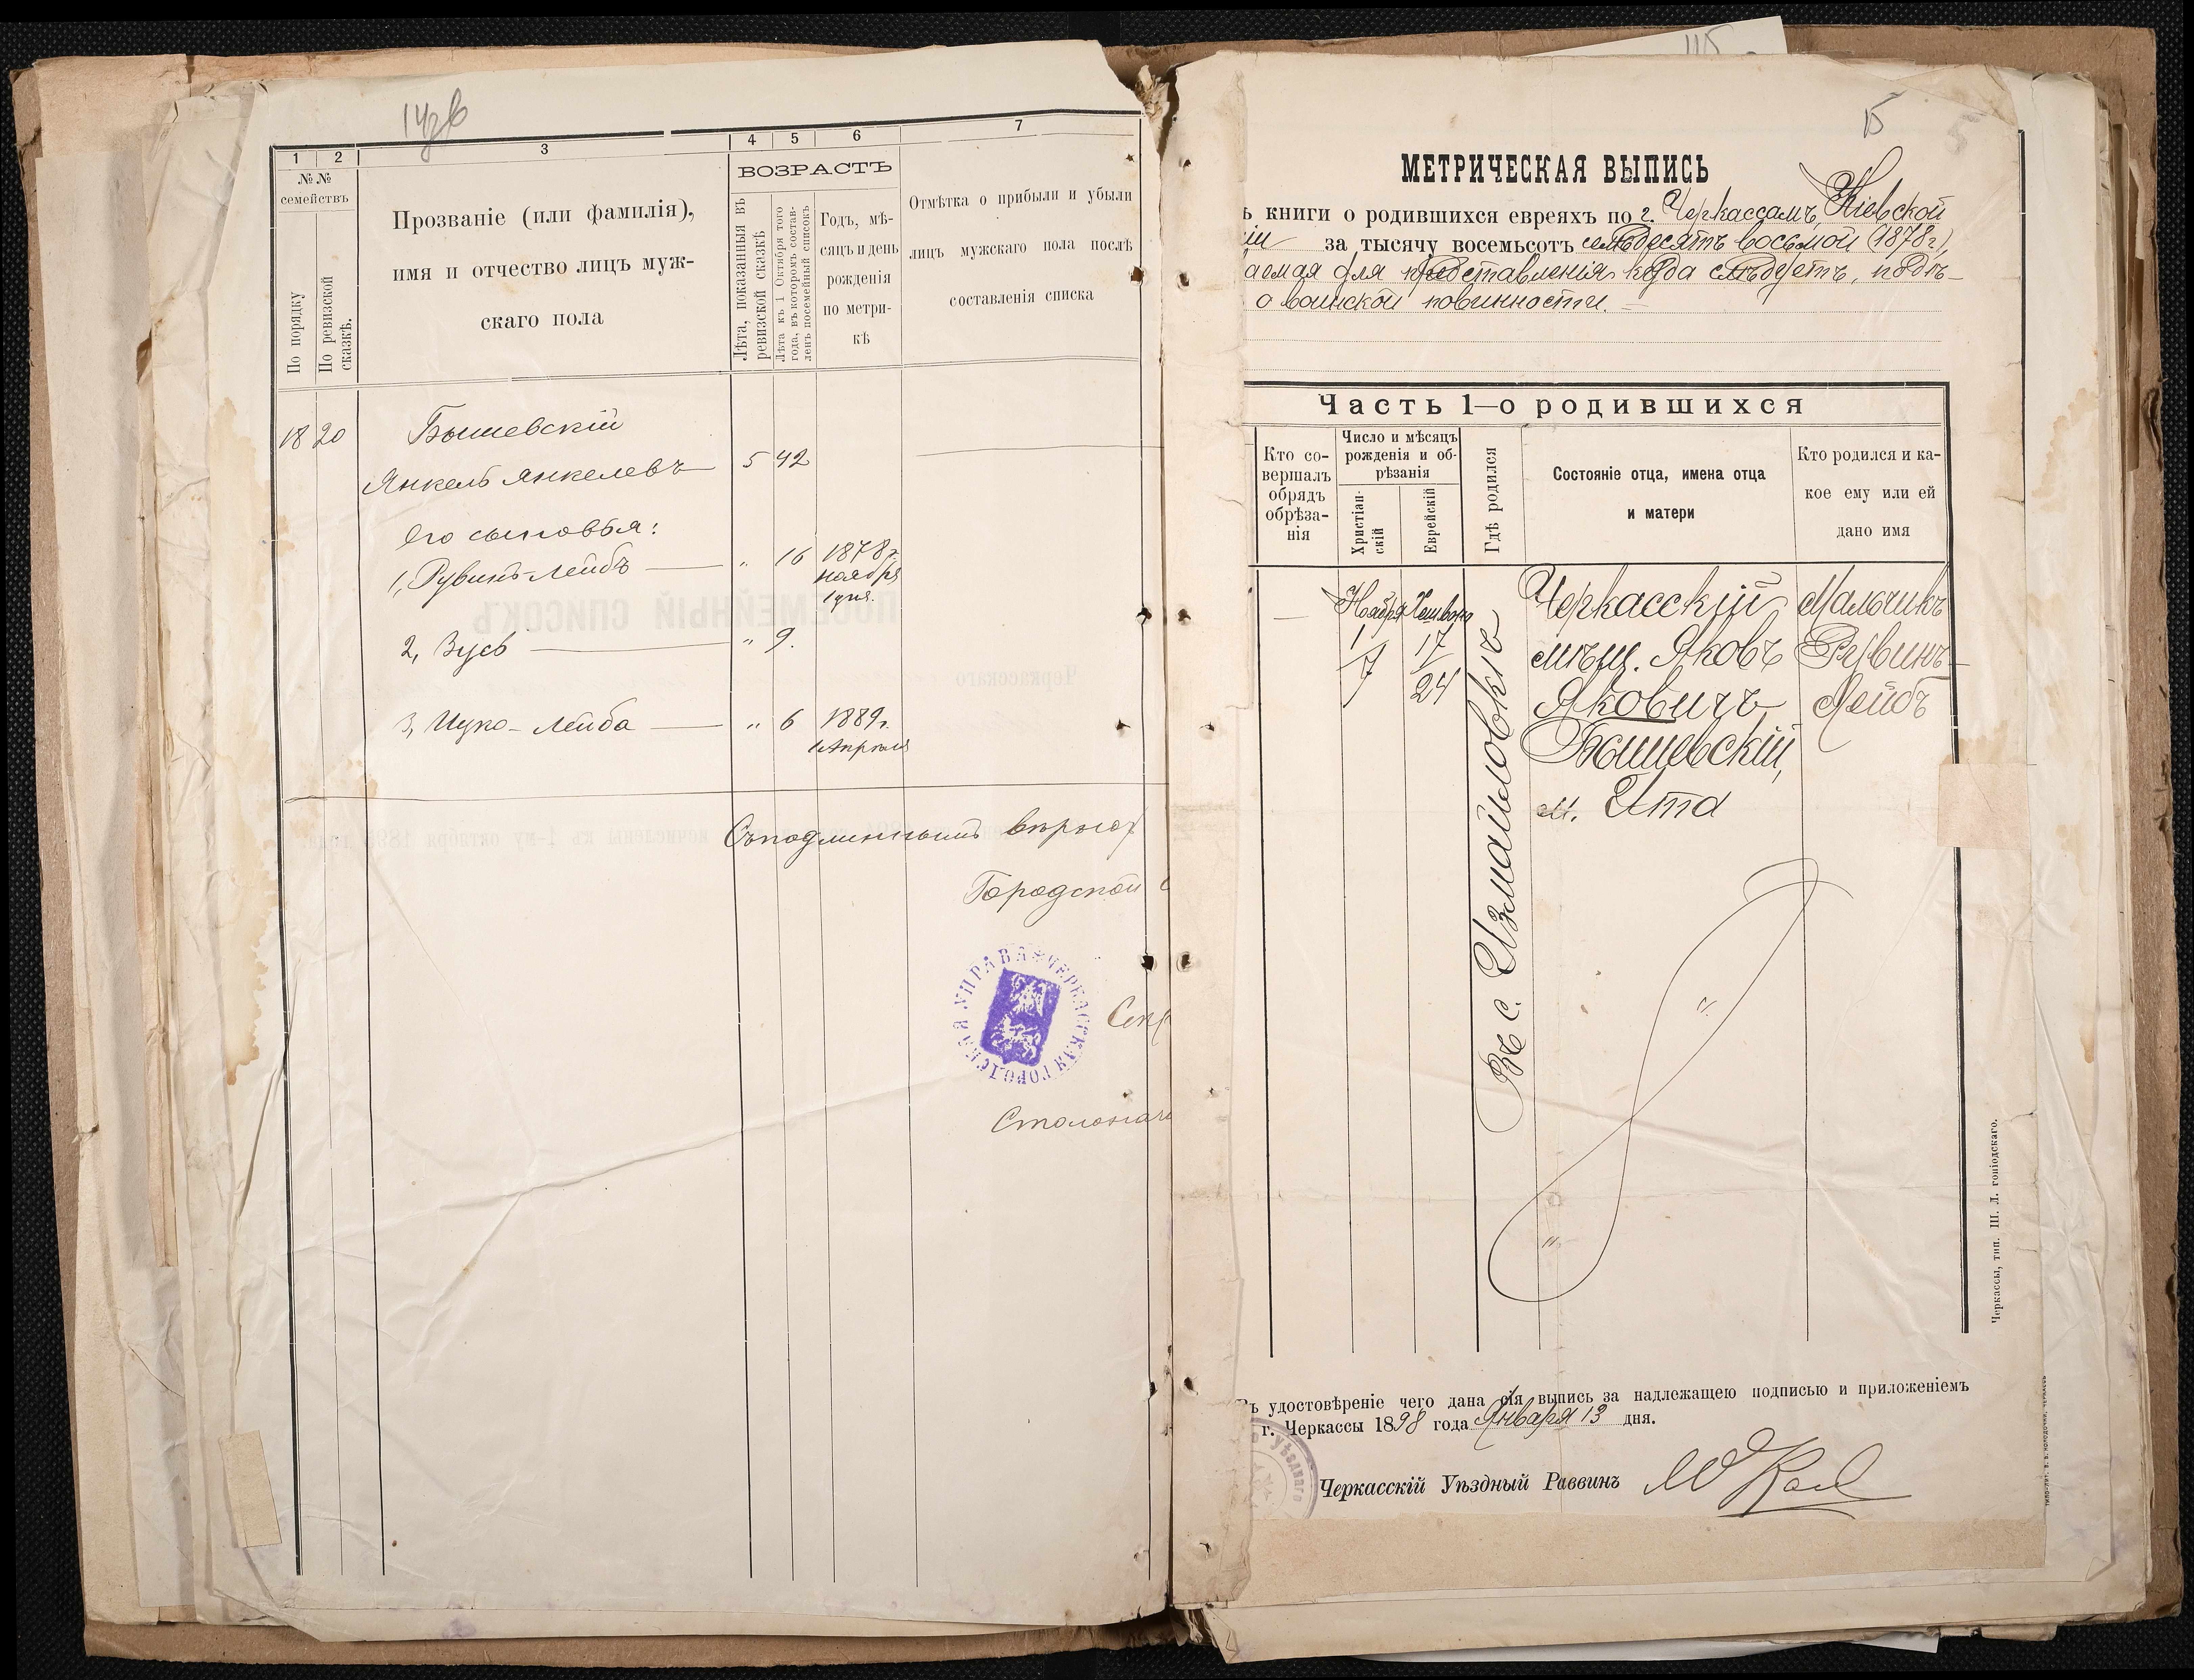 14об
1
2
3
4
5
6
7
№№
семействъ
По порядку
По ревизской
сказкѣ.
Прозваніе (или фамилія),
имя и отчество лицъ муж-
скаго пола
ВОЗРАСТЪ
Лѣта, показанныя въ
ревизской сказкѣ
Лѣта къ 1 Октября того
года, въ которомъ состав-
ленъ посемейный списокъ
Годъ, мѣ-
сяцъ и день
рожденія
по метри-
кѣ
Отмѣтка о прибыли и убыли
лицъ мужскаго пола послѣ
составленія списка
18 20 Бышевскій
Янкель Янкелевъ 5 42
Его сыновья:
1, Рувинъ-Лейбъ " 16 1878 г.
ноября
1 дня.
2, Зусь " 9.
3, Ицко-Лейба " 6 1889 г.
1 Апрѣля
Съ подлиннымъ вѣрно:
Городской
Секр
Столонача
ЧЕРКАССКАЯ ГОРОДСКАЯ УПРАВА
115
15
5
МЕТРИЧЕСКАЯ ВЫПИСЬ
ъ книги о родившихся евреяхъ по г. Черкассамъ, Кіевской
іи за тысячу восемьсотъ семьдесятъ восьмой (1878 г.),
аемая для представленія куда слѣдуетъ, подъ-
о воинской повинности. —
Часть 1—о родившихся
Кто со-
вершалъ
обрядъ
обрѣза-
нія
Число и мѣсяцъ
рожденія и об-
рѣзанія
Христіан-
скій
Еврейскій
Гдѣ родился
Состояніе отца, имена отца
и матери
Кто родился и ка-
кое ему или ей
дано имя
— Ноября Хешвонъ Черкасскій Мальчикъ
1 17 мѣщ. Яковъ Рувинъ-
7 24 Яковичъ Лейбъ
Бышевскій,
м. Ита
Въ с. Измайловкѣ
Черкассы, тип. Ш. Л.
Въ удостовѣреніе чего дана сія выпись за надлежащею подписью и приложеніемъ
г. Черкассы 1898 года Января 13 дня.
Черкасскій Уѣздный Раввинъ
Уѣзднаго